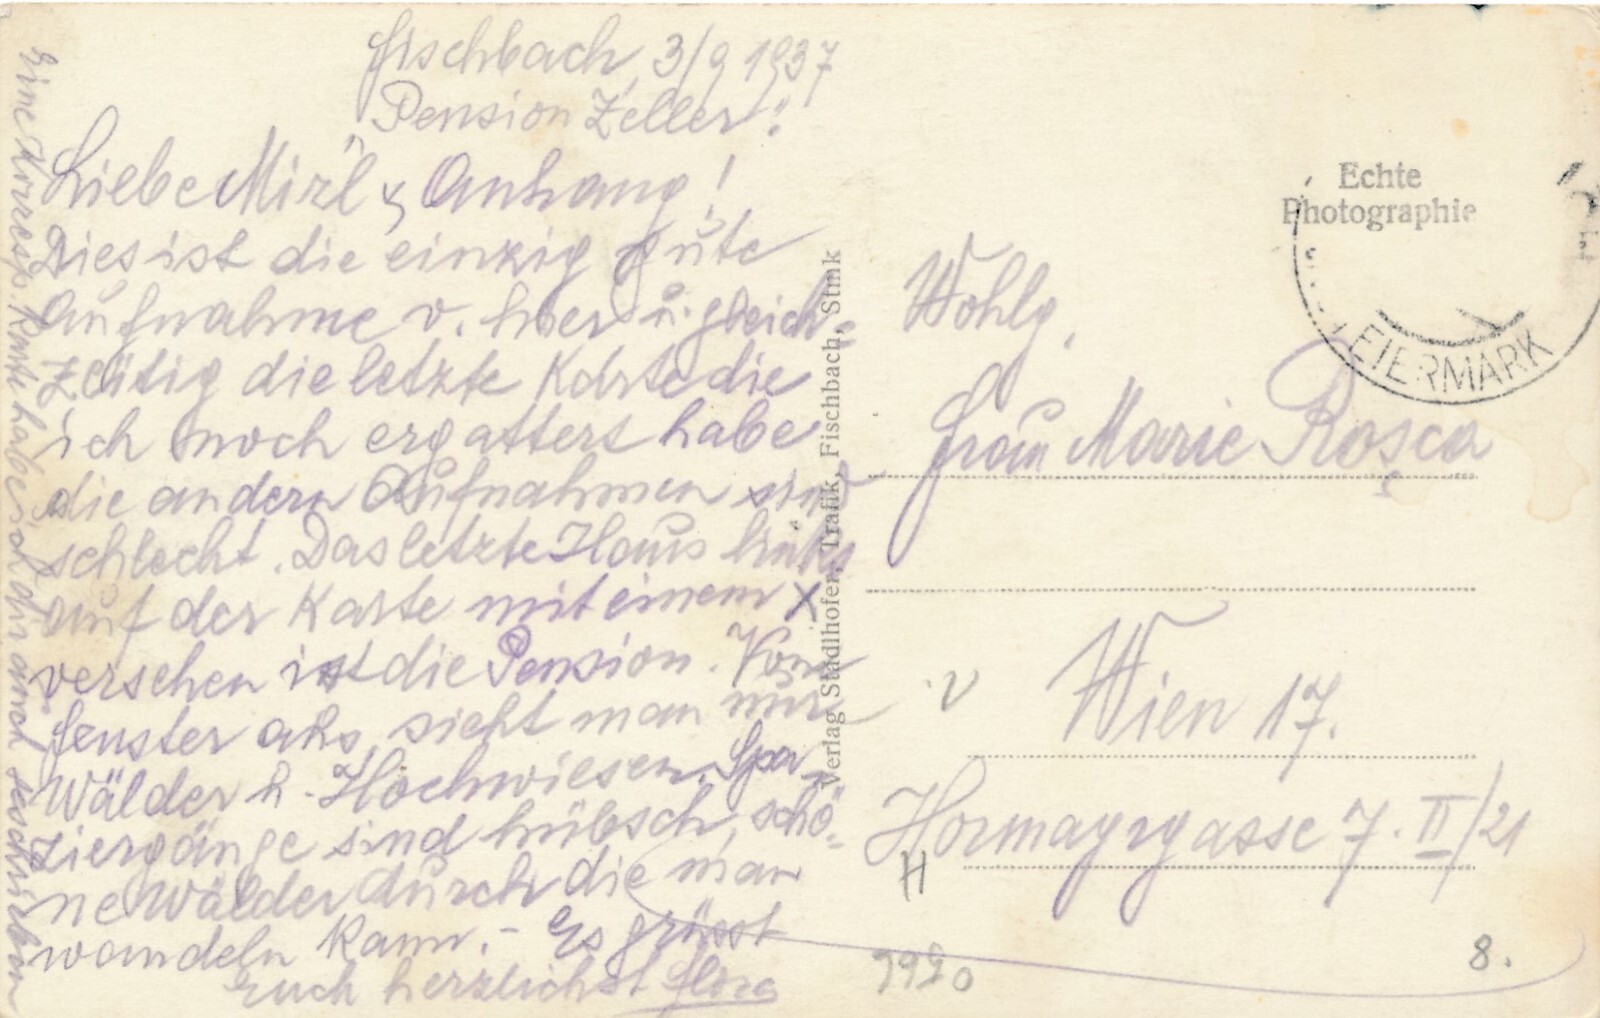 Fischbach, 3/9 1937
Pension Zeller!
Liebe Mizl u Anhang!
Dies ist die einzig gute
Aufnahme v. hier u. gleich-
zeitig die letzte Karte die
ich noch ergattert habe
die andern Aufnahmen sind
schlecht. Das letzte Haus links
auf der Karte mit einem X
versehen ist die Pension. Vom
Fenster aus sieht man nur
Wälder u. Hochwiesen. Spa-
ziergänge sind hübsch, schö-
ne Wälder durch die man
wandeln kann. - Es grüsst
Euch herzlichst Flora
Eine Korresp. Karte habe ich dir auch geschrieben
Verlag Stadlhofer, Trafik, Fischbach, Stmk
Echte
Photographie
EIERMARK
Wohlg.
Frau Marie Roşca
Wien 17.
Hormayrgasse 7. II/21
V
H
8.